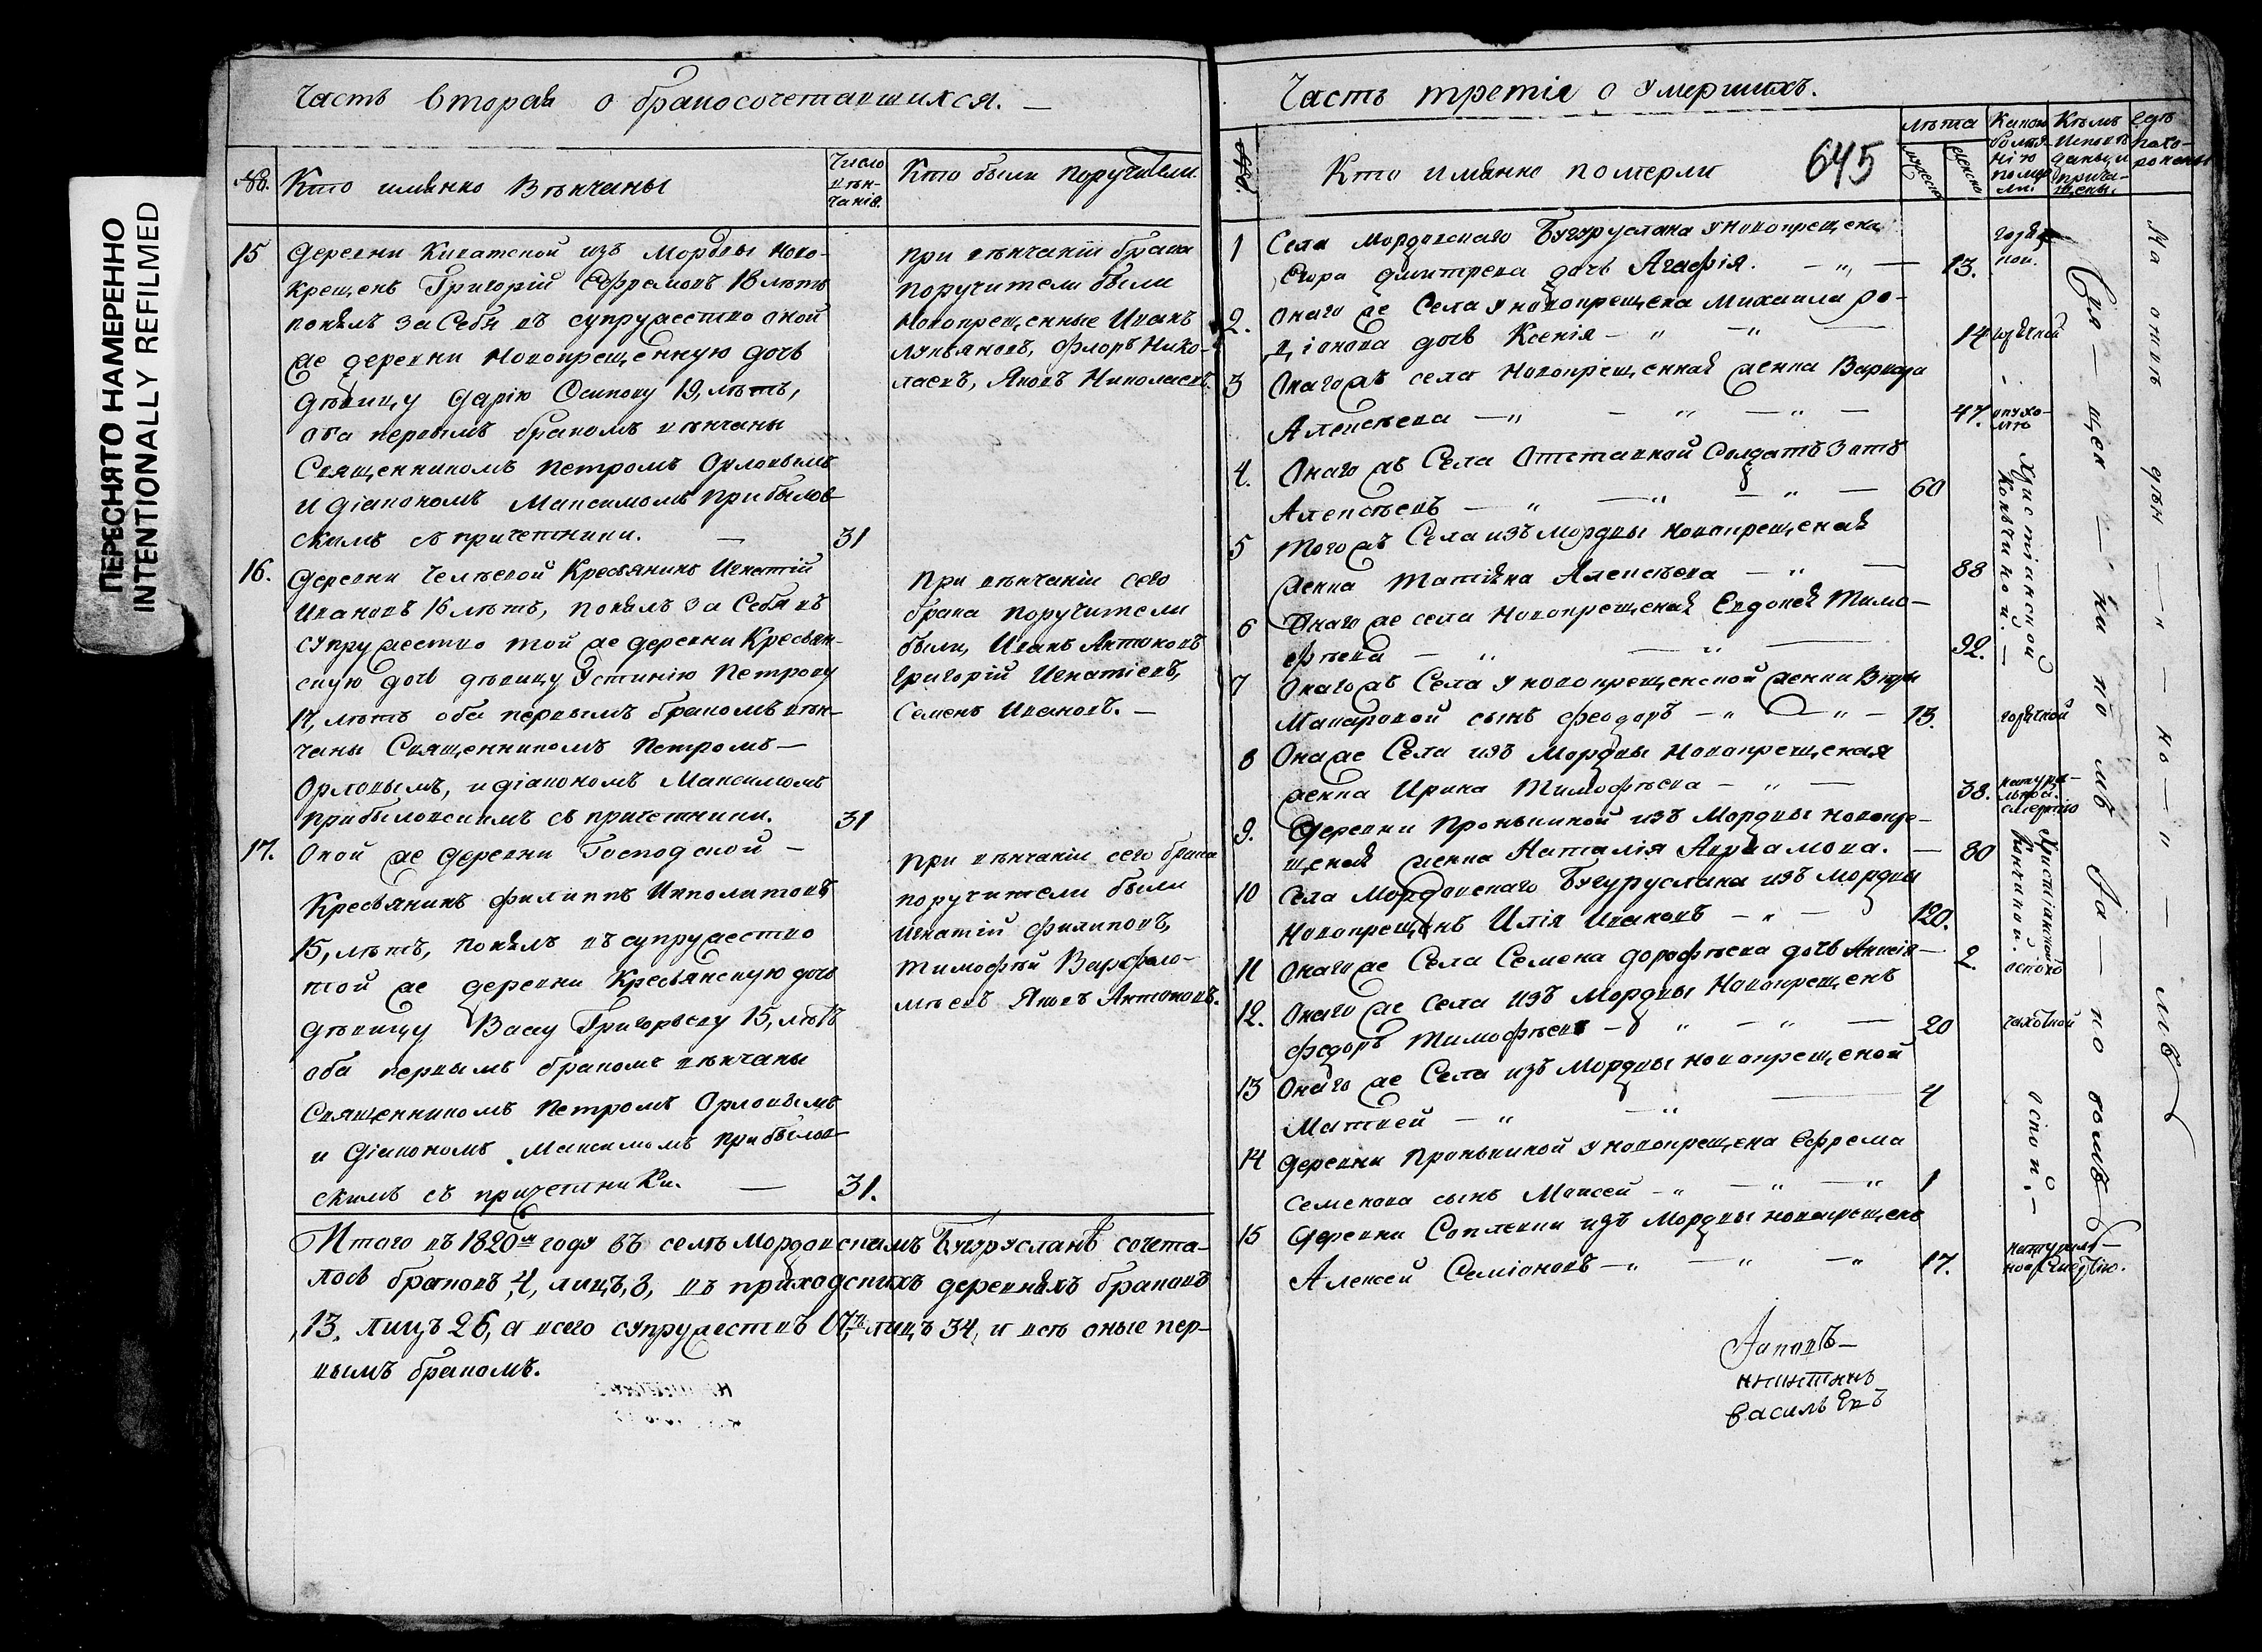 ПЕРЕСНЯТО НАМЕРЕННО
INTENTIONALLY REFILMED
Часть вторая о бракосочетавшихся.
№. Кто имянно вѣнчаны
Число вѣн-
чанія.
Кто были поручители
15 Деревни Кицатской изъ Мордвы ново-
крещенъ Григорій Ефремовъ 18 лѣтъ
понялъ за Себя въ супружество оной
же деревни новокрещенную дочь
дѣвицу Дарію Осипову 19, лѣтъ,
оба первымъ бракомъ вѣнчаны
Священникомъ Петромъ Орловымъ
и діакономъ Максимомъ Прибылов-
скимъ съ причетники. — 31
при вѣнчаніи брака
поручители были
Новокрещенные Иванъ
Лукьяновъ, Флоръ Нико-
лаевъ, Яковъ Николаевъ.
16. Деревни Крестьянинъ Игнатій
Ивановъ 16 лѣтъ, понялъ за Себя въ
супружество той же деревни Крестьян-
скую дочь дѣвицу Устинію Петрову
17, лѣтъ оба первымъ бракомъ вѣн-
чаны Священникомъ Петромъ —
Орловымъ, и діакономъ Максимомъ
Прибыловскимъ съ причетники. 31
При вѣнчаніи сего
брака поручители
были, Иванъ Антоновъ
Григорій Игнатіевъ,
Семенъ Ивановъ. —
17. Оной же деревни Господской —
Крестьянинъ Филиппъ Ипполитовъ
15, лѣтъ, понялъ въ супружество
той же деревни Крестьянскую дочь
дѣвицу Васу Григорьеву 15, лѣтъ
оба первымъ бракомъ вѣнчаны
Священникомъ Петромъ Орловымъ
и Діакономъ Максимомъ Прибылов-
скимъ съ причетники. — 31.
При вѣнчаніи сего брака
поручители были
Игнатій Филиповъ,
Тимофѣй Варфоло-
мѣевъ Яковъ Антоновъ.
Итого въ 1820м году въ селѣ Мордовскомъ Бугурусланѣ сочета-
лось браковъ, 4, лицъ, 8, въ приходскихъ деревняхъ браковъ
13, лицъ 26, а всего супружествъ 17ть, лицъ 34, и всѣ оные пер-
вымъ бракомъ.
Часть третія о умершихъ.
Кто имянно померли
645
лѣта
мужеска
женска
Какою
болѣз-
нію
помер-
ли
Кѣмъ
исповѣ-
даны, и
прича-
щены.
Гдѣ
похо-
ронены
1 Села Мордовскаго Бугуруслана у новокрещена
Егора Дмитрева дочь Агафія. — „ — 13.
2. Онаго же Села у новокрещена Михаила Ро-
діонова дочь Ксенія — „ — „ — 14 горячкой
3 Онагожъ села новокрещенная женка Варвара
Алексѣева — „ — „ — „ — 47. опухо-
лью
4. Онаго жъ Села Отставной Солдатъ Зотъ
Алексѣевъ — „ — „ — „ — 60
5 Тогожъ Села изъ Мордвы новокрещеная
женка Татіяна Алексѣева — „ — 88
6 Онаго же села новокрещеная Евдокея Тимо-
фѣева — „ — „ — 92.
Христіанской
Кончиной. —
7 Онагожъ Села у новокрещенской женки Вѣры
Макаровой сынъ Феодоръ — „ — „ — 13. горячкой
8 Онаже Села изъ Мордвы новокрещеная
женка Ирина Тимофѣева — „ — 38. натура-
льной
смертію
9. Деревни Пронькиной изъ Мордвы новокре-
щеная женка Наталія Авраамова. — 80
10 Села Мордовскаго Бугуруслана изъ Мордвы
новокрещенъ Илія Ивановъ — „ — 120.
Христіанской
Кончиной.
11 Онагоже Села Семена Дорофѣева дочь Анисія — 2. оспою
12. Онаго же Села изъ Мордвы Новокрещенъ
Федоръ Тимофѣевъ — „ — „ — 20 чахоткой
13 Онаго же Села изъ Мордвы новокрещеной
Матвей — „ — „ — 4
14 Деревни Пронькиной у новокрещена Ефрема
Семенова сынъ Моисей — „ — „ — „ 1
оспой. —
15 Деревни Соплевки изъ Мордвы новокрещенъ
Алексей Семіоновъ — „ — „ — „ 17. натураль-
ною смертію.
Свя — щен — ни — комъ
На ономъ